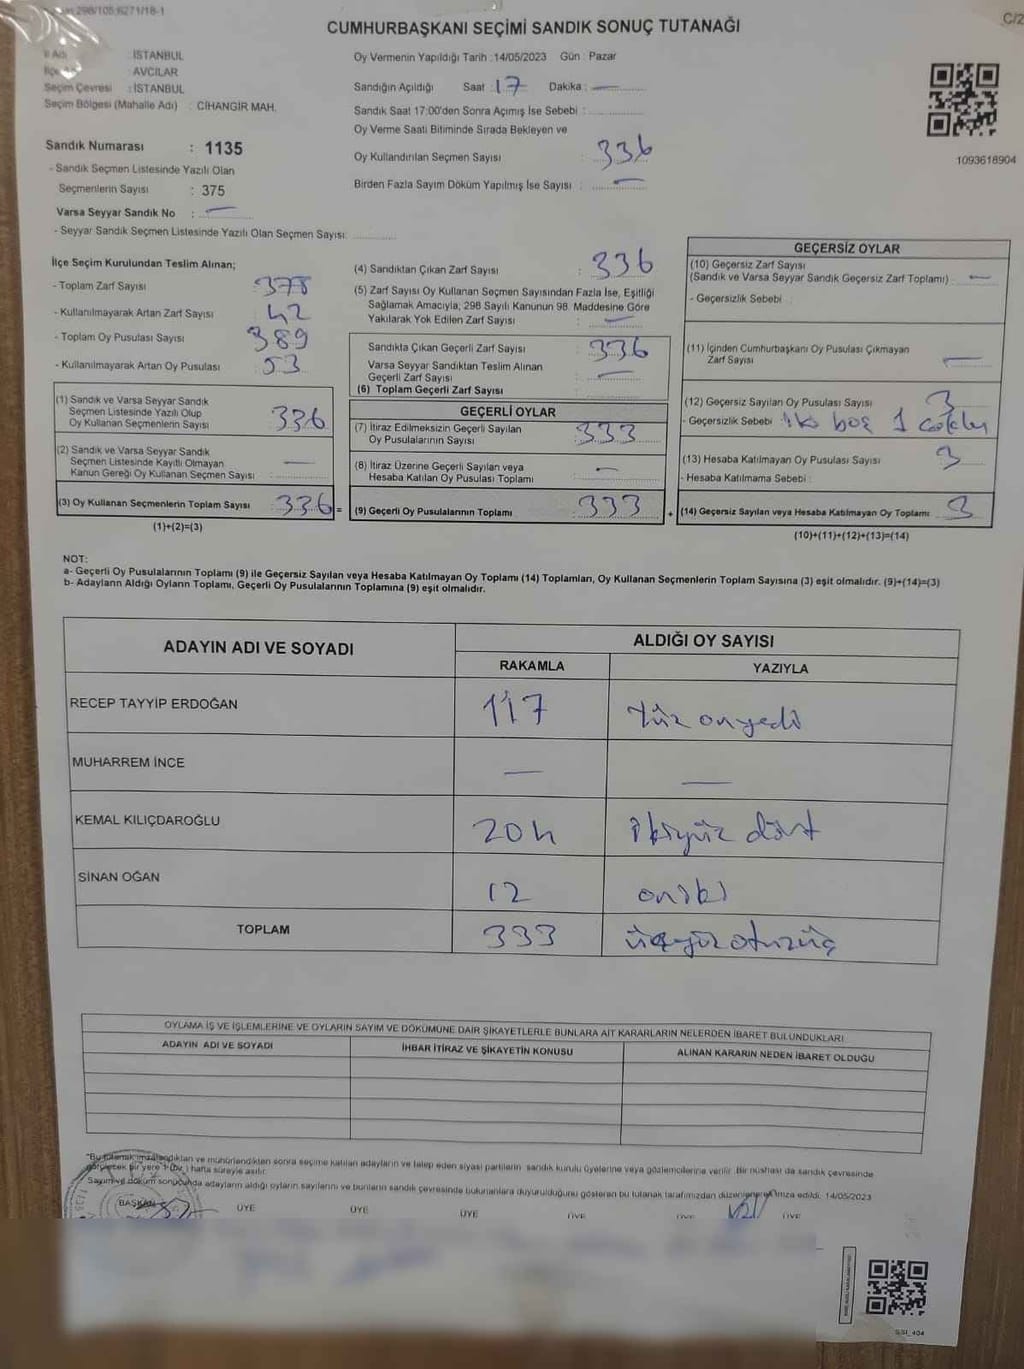 298/105;6271/18-1
C/2
CUMHURBAŞKANI SEÇİMİ SANDIK SONUÇ TUTANAĞI
İl Adı : İSTANBUL
İlçe Adı : AVCILAR
Seçim Çevresi : İSTANBUL
Seçim Bölgesi (Mahalle Adı) : CİHANGİR MAH.
Sandık Numarası : 1135
- Sandık Seçmen Listesinde Yazılı Olan
Seçmenlerin Sayısı : 375
Varsa Seyyar Sandık No : —
- Seyyar Sandık Seçmen Listesinde Yazılı Olan Seçmen Sayısı:
Oy Vermenin Yapıldığı Tarih : 14/05/2023 Gün : Pazar
Sandığın Açıldığı Saat : 17 Dakika : —
Sandık Saat 17:00'den Sonra Açımış İse Sebebi :
Oy Verme Saati Bitiminde Sırada Bekleyen ve
Oy Kullandırılan Seçmen Sayısı : 336
Birden Fazla Sayım Döküm Yapılmış İse Sayısı : —
1093618904
İlçe Seçim Kurulundan Teslim Alınan;
- Toplam Zarf Sayısı : 378
- Kullanılmayarak Artan Zarf Sayısı : 42
- Toplam Oy Pusulası Sayısı : 389
- Kullanılmayarak Artan Oy Pusulası : 53
(1) Sandık ve Varsa Seyyar Sandık
Seçmen Listesinde Yazılı Olup
Oy Kullanan Seçmenlerin Sayısı : 336
(2) Sandık ve Varsa Seyyar Sandık
Seçmen Listesinde Kayıtlı Olmayan
Kanun Gereği Oy Kullanan Seçmen Sayısı : —
(3) Oy Kullanan Seçmenlerin Toplam Sayısı 336 =
(1)+(2)=(3)
(4) Sandıktan Çıkan Zarf Sayısı : 336
(5) Zarf Sayısı Oy Kullanan Seçmen Sayısından Fazla İse, Eşitliği
Sağlamak Amacıyla; 298 Sayılı Kanunun 98. Maddesine Göre
Yakılarak Yok Edilen Zarf Sayısı : —
Sandıkta Çıkan Geçerli Zarf Sayısı : 336
Varsa Seyyar Sandıktan Teslim Alınan
Geçerli Zarf Sayısı : —
(6) Toplam Geçerli Zarf Sayısı :
GEÇERLİ OYLAR
(7) İtiraz Edilmeksizin Geçerli Sayılan
Oy Pusulalarının Sayısı : 333
(8) İtiraz Üzerine Geçerli Sayılan veya
Hesaba Katılan Oy Pusulası Toplamı : —
(9) Geçerli Oy Pusulalarının Toplamı 333 +
GEÇERSİZ OYLAR
(10) Geçersiz Zarf Sayısı
(Sandık ve Varsa Seyyar Sandık Geçersiz Zarf Toplamı) : —
- Geçersizlik Sebebi :
(11) İçinden Cumhurbaşkanı Oy Pusulası Çıkmayan
Zarf Sayısı : —
(12) Geçersiz Sayılan Oy Pusulası Sayısı : 3
- Geçersizlik Sebebi : iki boş 1
(13) Hesaba Katılmayan Oy Pusulası Sayısı : 3
- Hesaba Katılmama Sebebi :
(14) Geçersiz Sayılan veya Hesaba Katılmayan Oy Toplamı 3
(10)+(11)+(12)+(13)=(14)
NOT:
a- Geçerli Oy Pusulalarının Toplamı (9) ile Geçersiz Sayılan veya Hesaba Katılmayan Oy Toplamı (14) Toplamları, Oy Kullanan Seçmenlerin Toplam Sayısına (3) eşit olmalıdır. (9)+(14)=(3)
b- Adayların Aldığı Oyların Toplamı, Geçerli Oy Pusulalarının Toplamına (9) eşit olmalıdır.
ADAYIN ADI VE SOYADI ALDIĞI OY SAYISI
RAKAMLA YAZIYLA
RECEP TAYYİP ERDOĞAN 117 yüz onyedi
MUHARREM İNCE — —
KEMAL KILIÇDAROĞLU 204 ikiyüz dört
SİNAN OĞAN 12 oniki
TOPLAM 333 üçyüz otuzüç
OYLAMA İŞ VE İŞLEMLERİNE VE OYLARIN SAYIM VE DÖKÜMÜNE DAİR ŞİKAYETLERLE BUNLARA AİT KARARLARIN NELERDEN İBARET BULUNDUKLARI
ADAYIN ADI VE SOYADI İHBAR İTİRAZ VE ŞİKAYETİN KONUSU ALINAN KARARIN NEDEN İBARET OLDUĞU
"Bu tutanak imzalandıktan ve mühürlendikten sonra seçime katılan adayların ve talep eden siyasi partilerin sandık kurulu üyelerine veya gözlemcilerine verilir. Bir nüshası da sandık çevresinde
görülecek bir yere 1 (bir) hafta süreyle asılır.
Sayım ve döküm sonucunda adayların aldığı oyların sayılarını ve bunların sandık çevresinde bulunanlara duyurulduğunu gösteren bu tutanak tarafımızdan düzenlenerek imza edildi. 14/05/2023
BAŞKAN ÜYE ÜYE ÜYE ÜYE ÜYE ÜYE
SSI_404